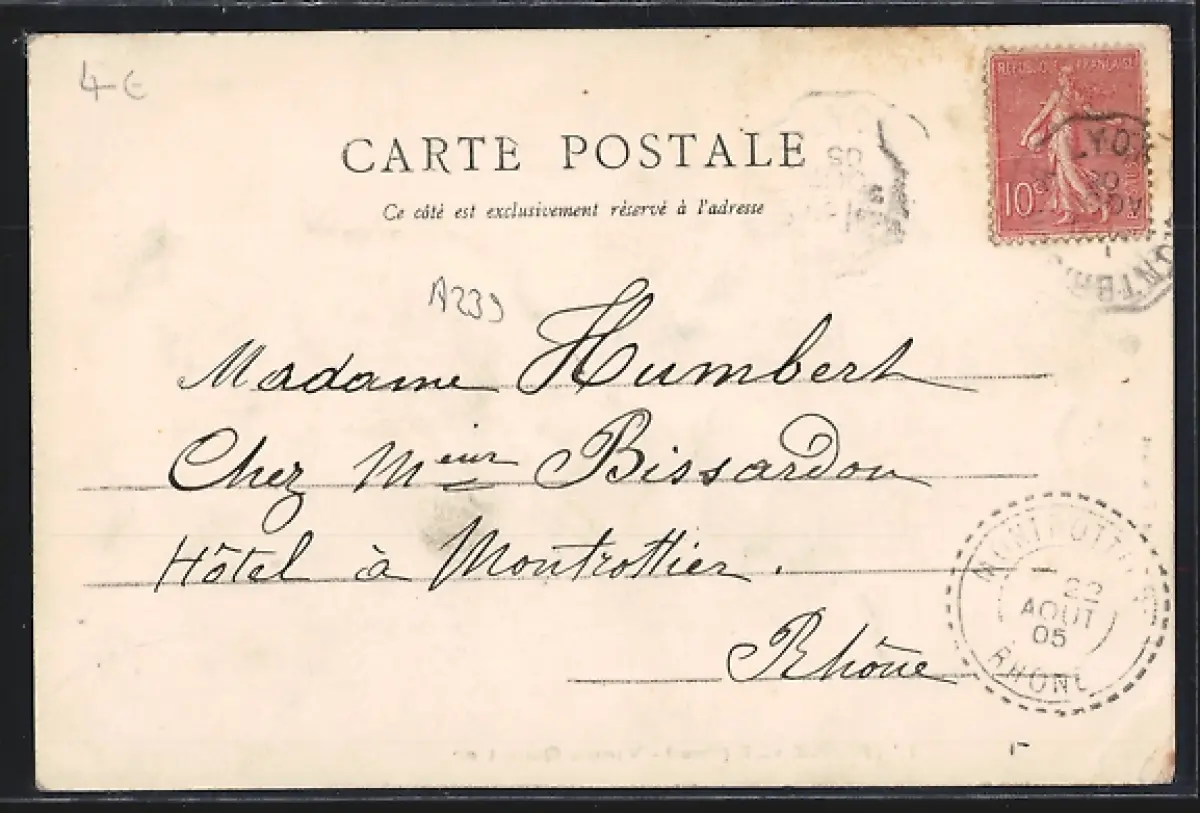 4 €
RÉPUBLIQUE FRANÇAISE
10 c
POSTES
CARTE POSTALE
Ce côté est exclusivement réservé à l'adresse
A239
Madame Humbert
Chez Meur Bissardon
Hôtel à Montrottier.
Rhône
MONTROTTIER
22
AOUT
05
RHONE